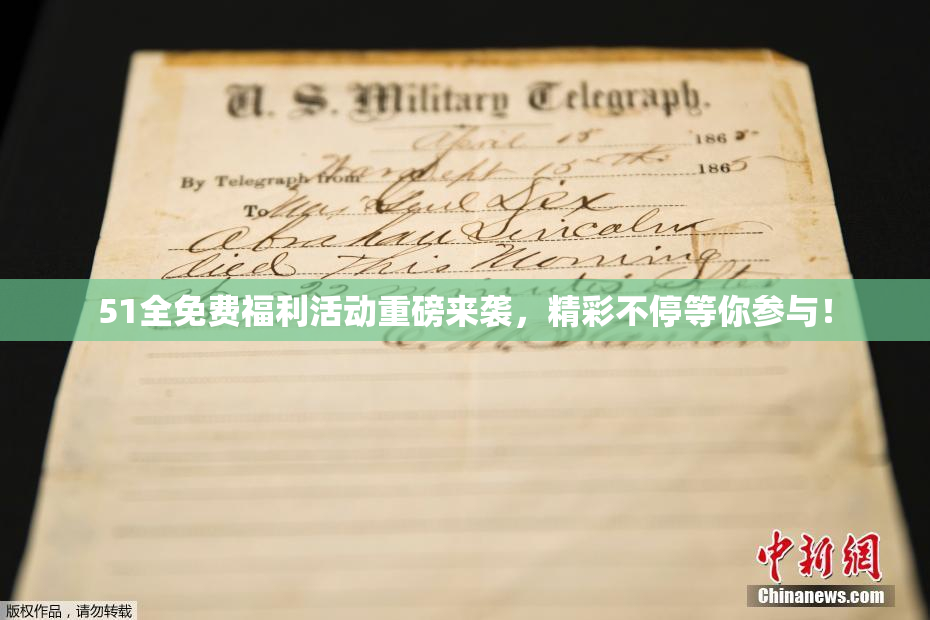 U. S. Military Telegraph.
April 15 1865
By Telegraph from War Dept 15th 1865
To Maj Genl Dix
Abraham Lincoln
died This Morning
22 minutes after
51全免费福利活动重磅来袭，精彩不停等你参与！
E. M. Stanton
中新网
Chinanews.com
版权作品，请勿转载